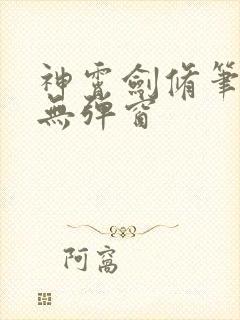 神霄劍脩筆
無彈窗
阿窩